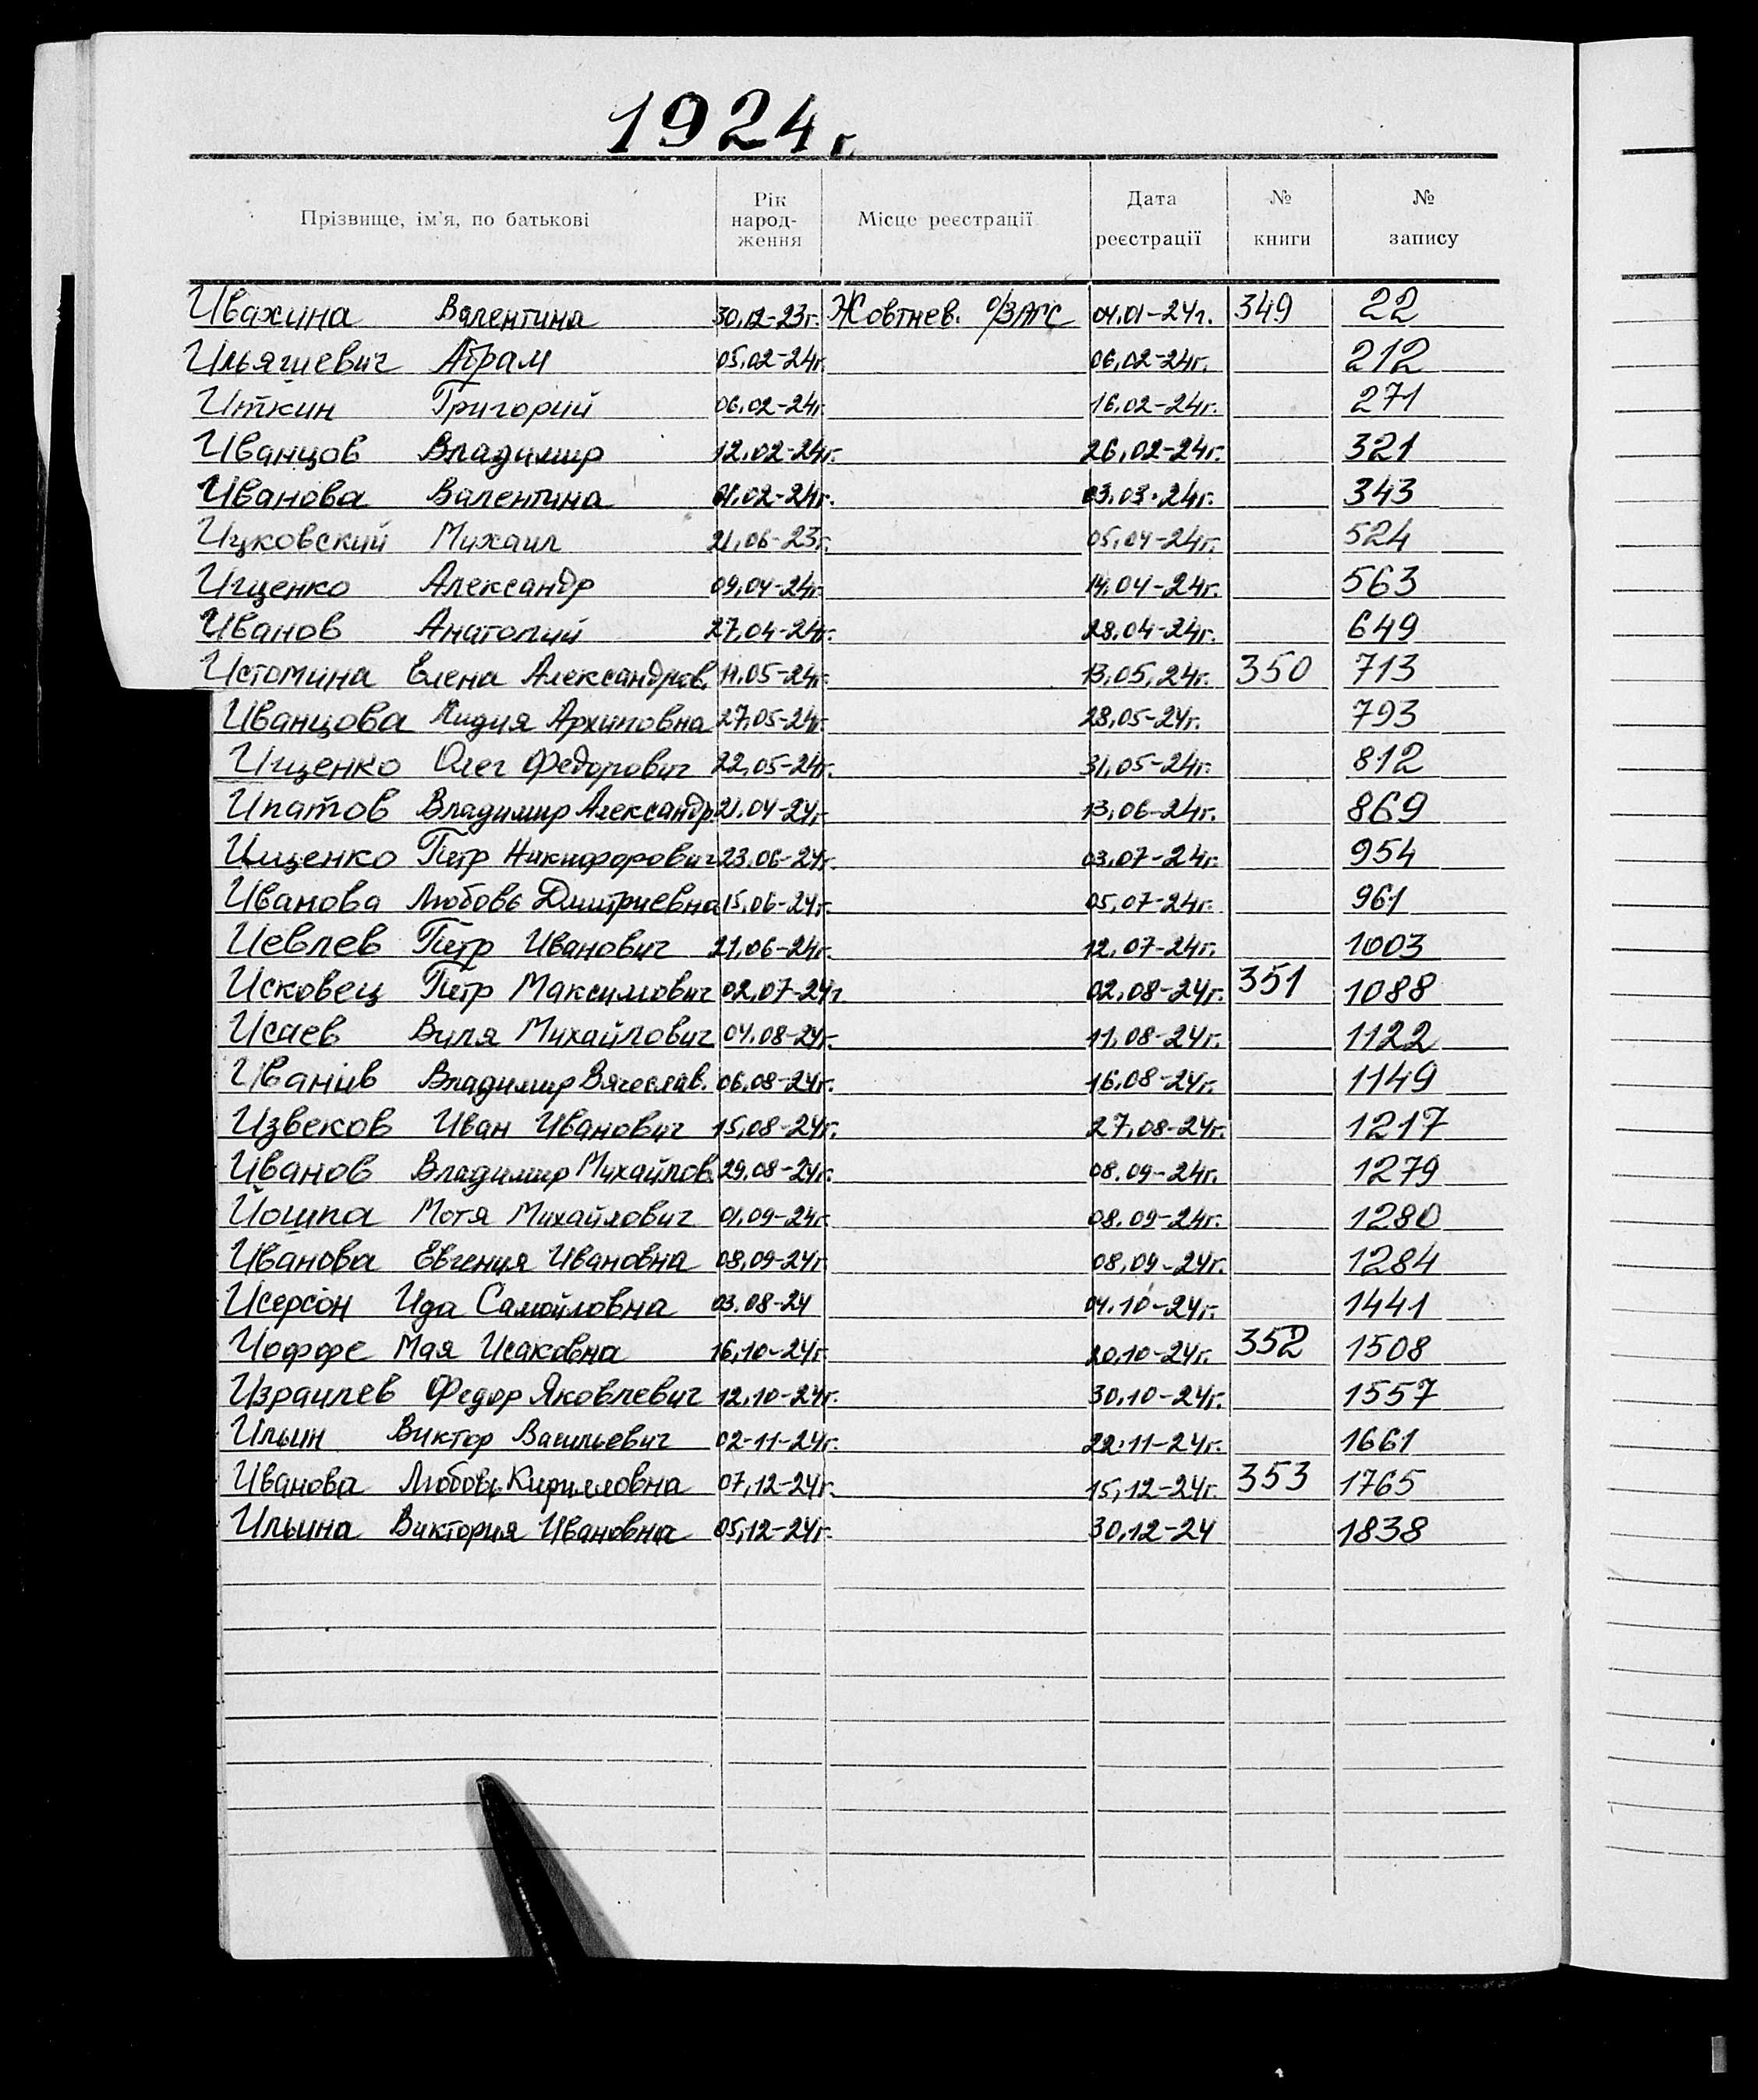 1924 г.
Прізвище, ім'я, по батькові Рік народження Місце реєстрації Дата реєстрації № книги № запису
Ивахина Валентина 30.12-23г. Жовтнев. о/ЗАГС 04.01-24г. 349 22
Ильягиевич Абрам 05.02-24г. 06.02-24г. 212
Иткин Григорий 06.02-24г. 16.02-24г. 271
Иванцов Владимир 12.02-24г. 26.02-24г. 321
Иванова Валентина 01.02-24г. 03.03.24г. 343
Ицковский Михаил 21.06-23г. 05.04-24г. 524
Ищенко Александр 09.04-24г. 14.04-24г. 563
Иванов Анатолий 27.04-24г. 28.04-24г. 649
Истомина Елена Александров. 11.05-24г. 13.05.24г. 350 713
Иванцова Лидия Архиповна 27.05-24г. 28.05-24г. 793
Ищенко Олег Федорович 22.05-24г. 31.05-24г. 812
Ипатов Владимир Александр. 21.04-24г. 13.06-24г. 869
Ищенко Петр Никифорович 23.06-24г. 03.07-24г. 954
Иванова Любовь Дмитриевна 15.06-24г. 05.07-24г. 961
Иевлев Петр Иванович 21.06-24г. 12.07-24г. 1003
Исковец Петр Максимович 02.07-24г 02.08-24г. 351 1088
Исаев Виля Михайлович 04.08-24г. 11.08-24г. 1122
Иванив Владимир Вячеслав. 06.08-24г. 16.08-24г. 1149
Извеков Иван Иванович 15.08-24г. 27.08-24г. 1217
Иванов Владимир Михайлов. 29.08-24г. 08.09-24г. 1279
Йошпа Мотя Михайлович 01.09-24г. 08.09-24г. 1280
Иванова Евгения Ивановна 08.09-24г. 08.09-24г. 1284
Исерсон Ида Самойловна 03.08-24 04.10-24г. 1441
Иоффе Мая Исаковна 16.10-24г. 20.10-24г. 352 1508
Израилев Федор Яковлевич 12.10-24г. 30.10-24г. 1557
Ильин Виктор Васильевич 02-11-24г. 22.11-24г. 1661
Иванова Любовь Кирилловна 07.12-24г. 15.12-24г. 353 1765
Ильина Виктория Ивановна 05.12-24г. 30.12-24 1838